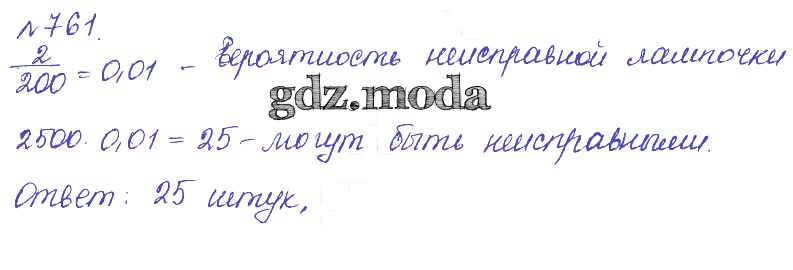 №761.
2/200 = 0,01 - Вероятность неисправной лампочки
gdz.moda
2500·0,01 = 25 - могут быть неисправными.
Ответ: 25 штук,